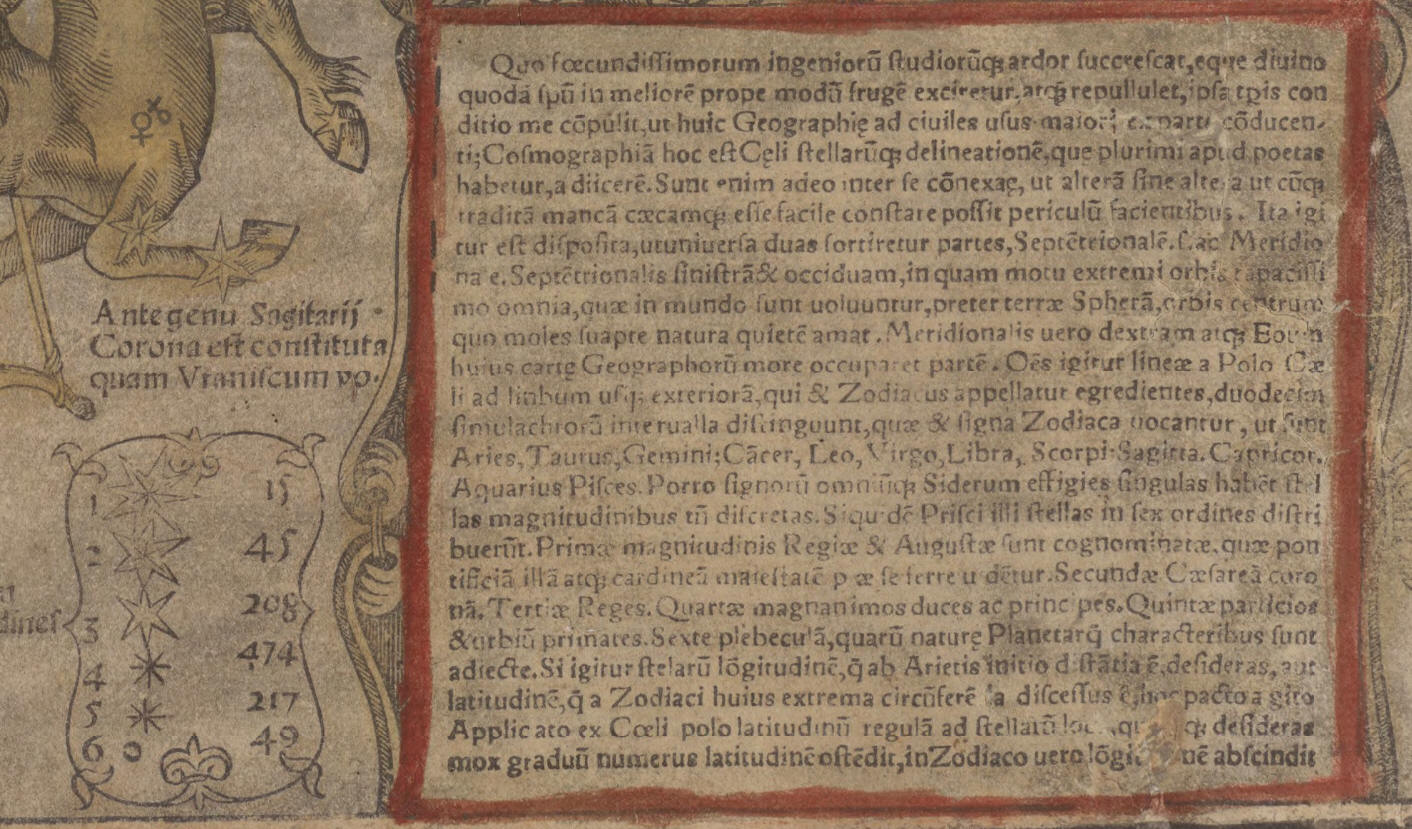 Quo fœcundiſſimorum ingeniorū ſtudiorūqꝫ ardor ſuccreſcat, eque diuino
quodā ſpū in meliorē prope modū frugē exciretur, atqꝫ repullulet, ipſa tpis con
ditio me cōpulit, ut huic Geographię ad ciuiles uſus maiori ex parte cōducen-
ti; Coſmographiā hoc eſt Cęli ſtellarūqꝫ delineationē, que plurimi apud poetas
habetur, adiicerē. Sunt enim adeo inter ſe cōnexae, ut alterā ſine altera ut cūqꝫ
traditā mancā cæcamqꝫ eſſe facile conſtare poſſit periculū facientibus. Ita igi
tur eſt diſpoſita, utuniuerſa duas ſortiretur partes, Septētrionalē. ſ. ac Meridio
na e. Septētrionalis ſiniſtrā & occiduam, in quam motu extremi orbis rapaciſſi
mo omnia, quæ in mundo ſunt uoluuntur, preter terræ Spherā, orbis centrum
quo moles ſuapte natura quietē amat. Meridionalis uero dextram atqꝫ
huius carte Geographorū more occuparet partē. Oēs igitur lineæ a Polo Cæ
li ad limbum uſqꝫ exteriorā, qui & Zodiacus appellatur egredientes, duodecim
ſimulachrorū interualla diſtinguunt, quæ & ſigna Zodiaca uocantur, ut ſunt
Aries, Taurus, Gemini; Cācer, Leo, Virgo, Libra, Scorpi: Sagitta. Capricor.
Aquarius Piſces. Porro ſignorū omniūqꝫ Siderum effigies ſingulas habēt ſtel
las magnitudinibus tñ diſcretas. Siquidē Priſci illi ſtellas in ſex ordines diſtri
buerūt. Primæ magnitudinis Regiæ & Auguſtæ ſunt cognominatæ, quæ pon
tificiā illā atqꝫ cardineā maieſtatē præ ſe ferre uidētur. Secundæ Cæſareā coro
nā. Tertiæ Reges. Quartæ magnanimos duces ac principes. Quintæ patricios
& urbiū primates. Sexte plebeculā, quarū nature Planetarū characteribus ſunt
adiecte. Si igitur ſtelarū lōgitudinē, q̄ ab Arietis initio diſtātia ē, deſideras, aut
latitudinē, q̄ a Zodiaci huius extrema circūferētia diſceſſus ē, hoc pacto a giro
Applicato ex Cœli polo latitudinū regulā ad ſtellarū deſideras
mox graduū numerus latitudinē oſtēdit, in Zodiaco uero abſcindit
Ante genu Sagitarij
Corona eſt conſtituta
quam Vraniſcum vo.
1 15
2 45
dines 3 208
4 474
5 217
6 49